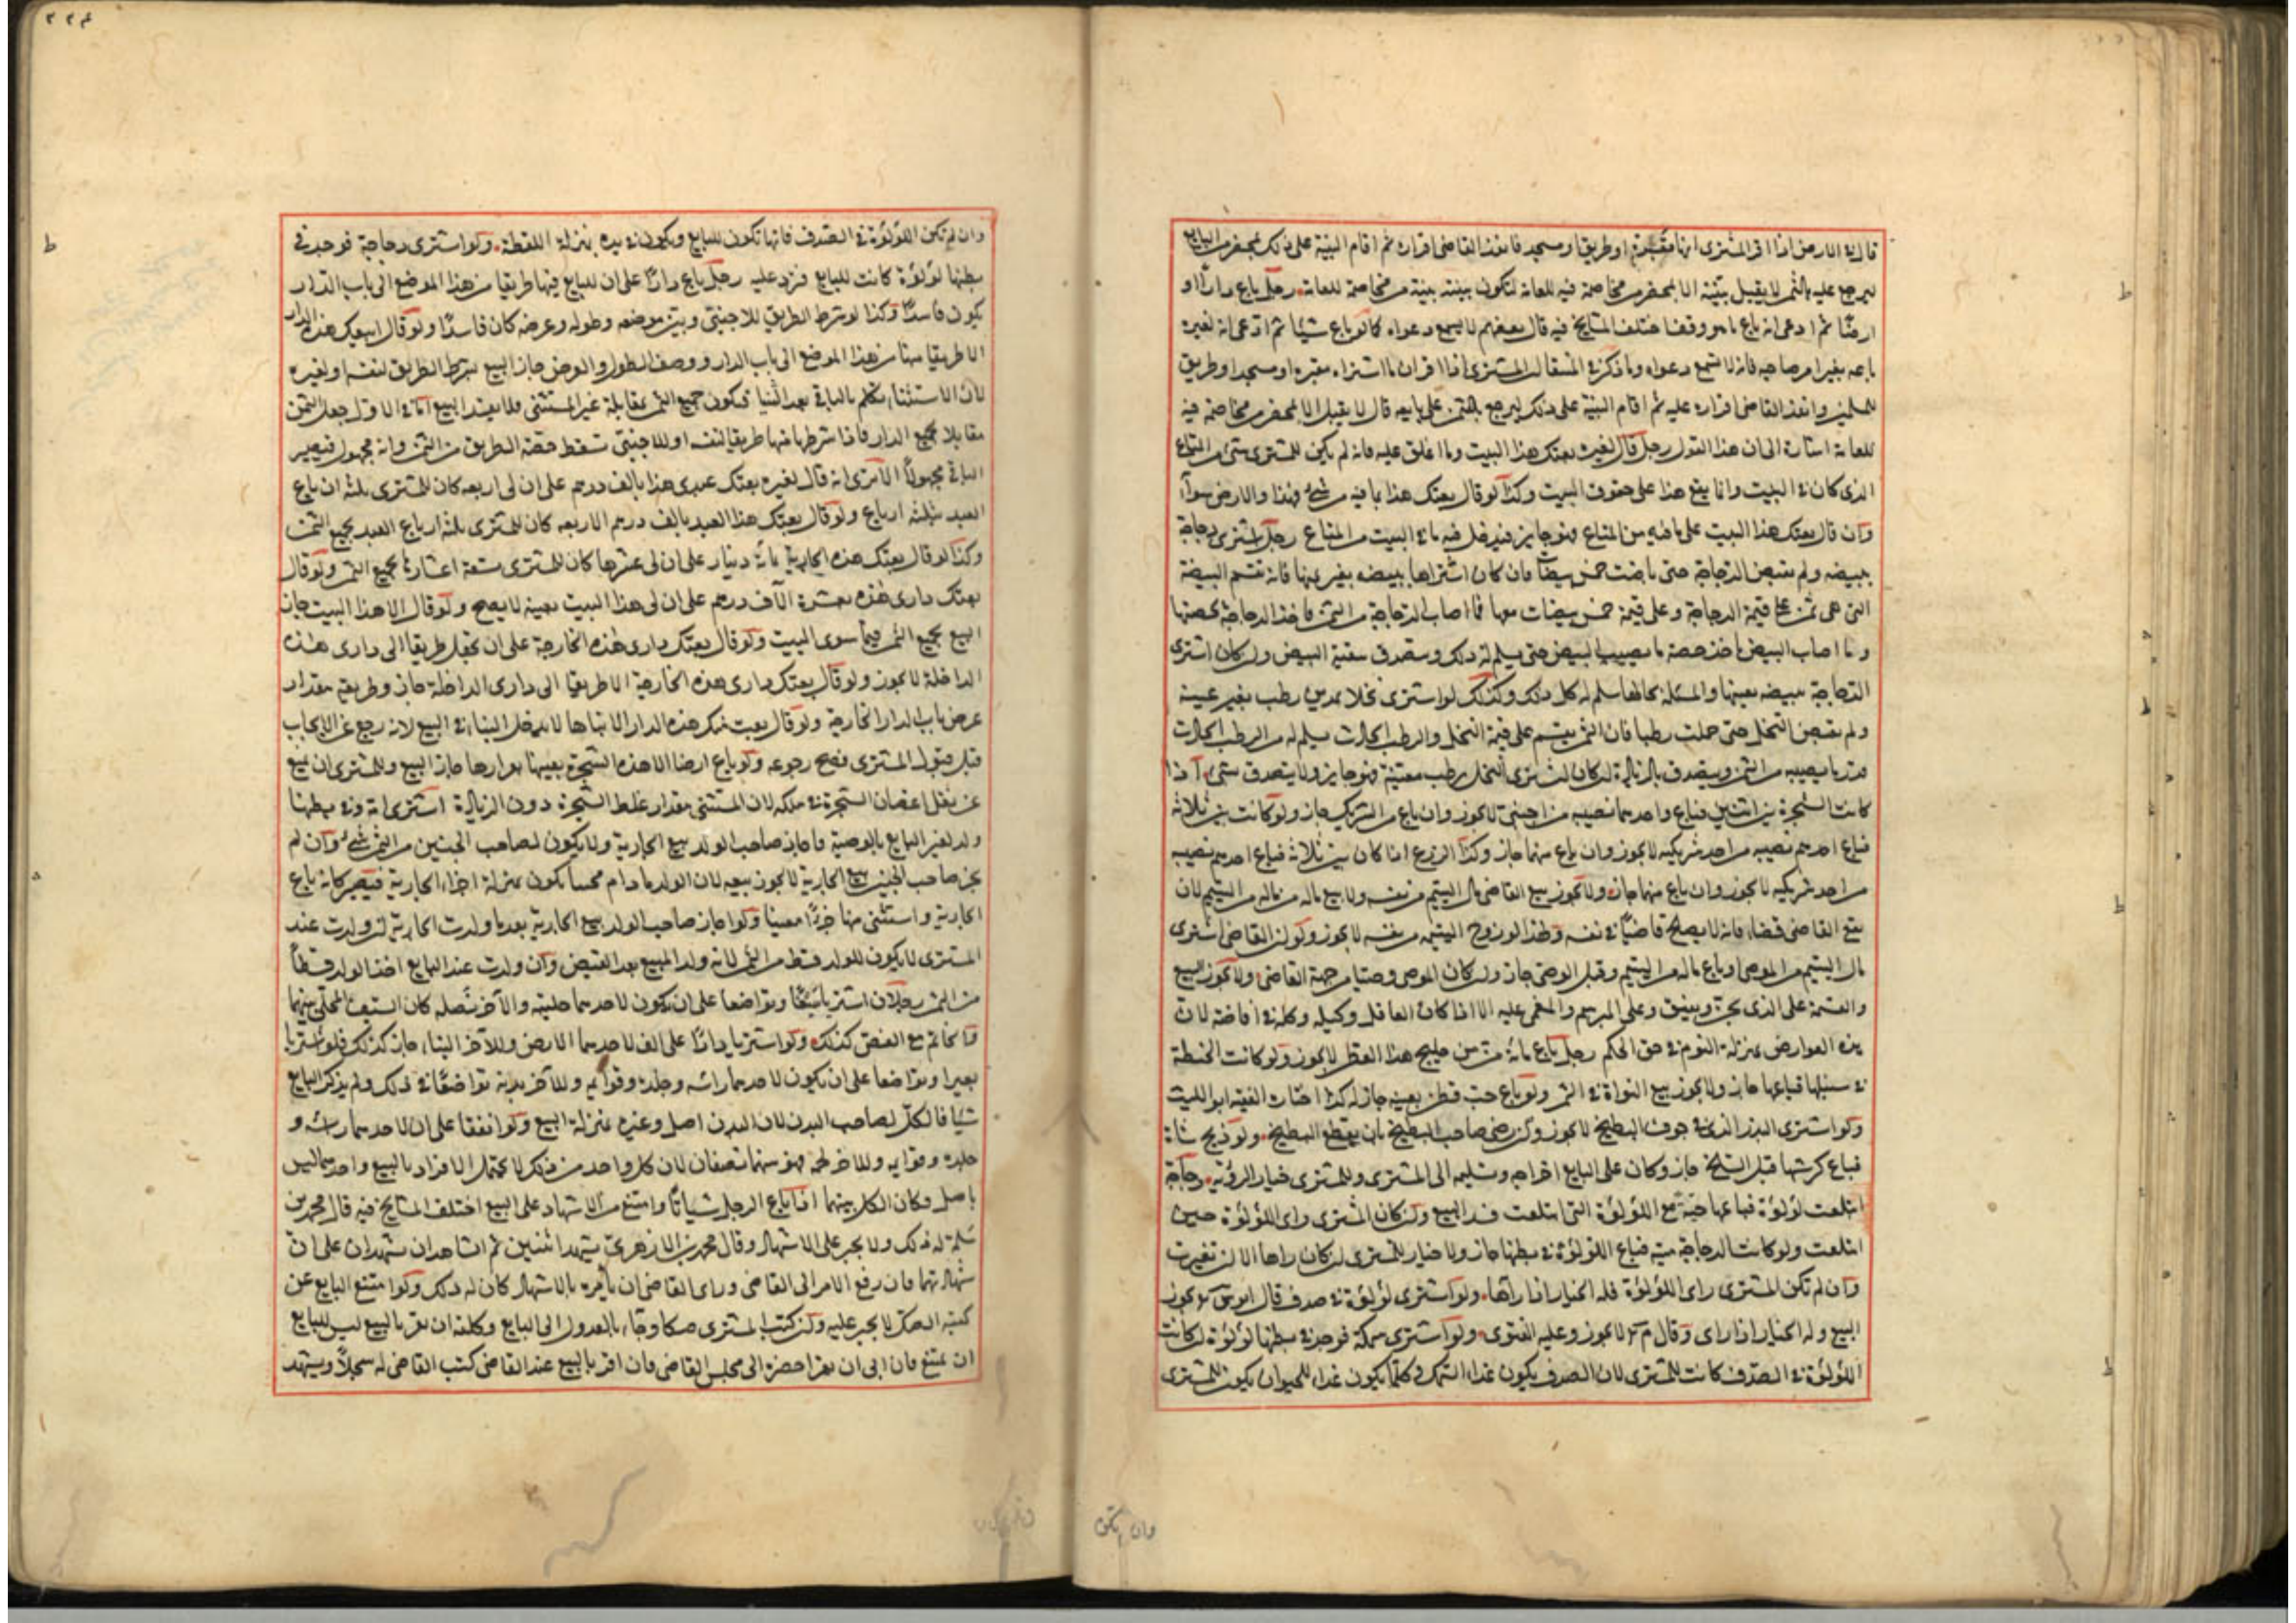 قال في الارض اذا اقر المشتري انها مقبرة او طريق او مسجد فانفذ القاضي اقراره ثم اقام البينة على ذلك بمحضر من البايع
ليرجع عليه بالثمن لا يقبل بينته الا بمحضر من مخاصمة فيه للعامة لتكون بينته بينة من مخاصمة للعامة رجل باع دارا او
ارضا ثم ادعى انه باع ما هو وقف اختلف المشايخ فيه قال بعضهم لا يسمع دعواه كما لو باع شيئا ثم ادعى انه لغيره
باعه بغير امر صاحبه فانه لا تسمع دعواه وما ذكر في المنتقى ان المشتري اذا اقر ان ما اشتراه مقبرة او مسجد او طريق
للمسلمين وانفذ القاضي اقراره عليه ثم اقام البينة على ذلك ليرجع بالثمن على بايعه قال لا يقبل الا بمحضر من مخاصمة فيه
للعامة اشارة الى ان هذا القول رجل قال لغيره بعتك هذا البيت وما اغلق عليه فانه لم يكن للمشتري شيء من المتاع
الذي كان في البيت وانما يقع هذا على حقوق البيت وكذا لو قال بعتك هذا بما فيه من شيء فهذا والارض سواء
وان قال بعتك هذا البيت على ما فيه من المتاع فهو جايز فيدخل فيه ما في البيت من المتاع رجل اشترى دجاجة
ببيضه ولم يقبض الدجاجة حتى باضت خمس بيضات فان كان اشتراها ببيضه بغير عينها فانه تقسم البيضة
التي هي ثمن على قيمة الدجاجة وعلى قيمة خمس بيضات معها فما اصاب الدجاجة من الثمن فاخذ الدجاجة بحصتها
وما اصاب البيض ياخذ حصة ما يصيب البيض حتى يسلم له ذلك ويتصدق ببقية البيض وان كان اشترى
الدجاجة ببيضه بعينها والمسئلة بحالها سلم له كل ذلك وكذلك لو اشترى نخلا بمد من رطب بغير عينه
ولم يقبض النخل حتى حملت رطبا فان الثمن يقسم على قيمة النخل والرطب الحادث يسلم له من الرطب الحادث
قدر ما يصيبه من الثمن ويتصدق بالزيادة ان كان اشترى النخل برطب معينة فهو جايز ولا يتصدق بشيء اذا
كانت الشجرة بين اثنين فباع واحد منهما نصيبه من اجنبي لا يجوز وان باع من الشريك جاز ولو كانت بين ثلاثة
فباع احدهم نصيبه من احد شريكيه لا يجوز وان باع منهما جاز وكذا الزرع اذا كان بين ثلاثة فباع احدهم نصيبه
من احد شريكيه لا يجوز وان باع منهما جاز ولا يجوز بيع القاضي مال اليتيم من نفسه ولا بيع ماله من مال من اليتيم لان
بيع القاضي قضاء فانه لا يصلح قاضيا في نفسه ولهذا لو زوج اليتيمه من نفسه لا يجوز وكون القاضي اشترى
مال اليتيم من الموصى او باع ماله من اليتيم وقبل الوصي جاز وان كان الموصى وصيا من جهة القاضي ولا يجوز البيع
والقسمة على الذي يجن ويفيق وعلى المبرسم والمغمى عليه الا اذا كان العاقل وكيله وكله في افاضة لان
هذه العوارض بمنزلة النوم في حق الحكم رجل باع مائة من من حليج هذا القطن لا يجوز ولو كانت الحنطة
في سنبلها فباعها جاز ولا يجوز بيع النواة في التمر ولو باع حب قطن بعينه جاز له كذا اختاره الفقيه ابو الليث
ولو اشترى البزر الذي في جوف البطيخ لا يجوز وان رضي صاحب البطيخ بان يقطع البطيخ ولو ذبح شاة
فباع كرشها قبل السلخ جاز وكان على البايع اخراجه وتسليمه الى المشتري وللمشتري خيار الرؤية دجاجة
ابتلعت لؤلؤة فباعها حية مع اللؤلؤة التي ابتلعت فسد البيع وان كان المشتري راى اللؤلؤة حين
ابتلعت ولو كانت الدجاجة ميتة فباع اللؤلؤة في بطنها جاز ولا خيار للمشتري ان كان راها الا ان تغيرت
وان لم تكن المشتري راى اللؤلؤة فله الخيار اذا راها ولو اشترى لؤلؤة في صدف قال ابو يوسف يجوز
البيع وله الخيار اذا راى وقال م لا يجوز وعليه الفتوى ولو اشترى سمكة فوجد في بطنها لؤلؤة ان كانت
اللؤلؤة في الصدف كانت للمشتري لان الصدف يكون غداء السمك وكلما يكون غداء للحيوان يكون للمشتري
وان تكن
٢٢٤
وان لم تكن اللؤلؤة في الصدف فانها تكون للبايع ويكون في يده بمنزلة اللقطة ولو اشترى دجاجة فوجد في
بطنها لؤلؤة كانت للبايع فترد عليه رجل باع دارا على ان للبايع فيها طريقا من هذا الموضع الى باب الدار
يكون فاسدا وكذا لو شرط الطريق للاجنبي وبين موضعه وطوله وعرضه كان فاسدا ولو قال ابيعك هذه الدار
الا طريقا منها من هذا الموضع الى باب الدار ووصف الطول والعرض جاز البيع بشرط الطريق لنفسه او لغيره
لان الاستثناء تكلم بالباقي بعد الثنيا فيكون جميع الثمن بمقابلة غير المستثنى فلا يفسد البيع اما في الاول جعل الثمن
مقابلا بجميع الدار فاذا شرط منها طريقا لنفسه او للاجنبي تسقط حصة الطريق من الثمن وانه مجهول فيصير
الباقي مجهولا الا ترى انه قال لغيره بعتك عبدي هذا بالف درهم على ان لي اربعه كان للمشتري ثلثه ارباع
العبد بثلثه ارباع ولو قال بعتك هذا العبد بالف درهم الا ربعه كان للمشتري ثلثه ارباع العبد بجميع الثمن
وكذا لو قال بعتك هذه الجارية بمائة دينار على ان لي عشرها كان للمشتري تسعة اعشارها بجميع الثمن ولو قال
بعتك داري هذه بعشرة الاف درهم على ان لي هذا البيت بعينه لا يصح ولو قال الا هذا البيت جاز
البيع بجميع الثمن فيما سوى البيت ولو قال بعتك داري هذه الخارجة على ان تجعل طريقا الى داري هذه
الداخلة لا يجوز ولو قال بعتك داري هذه الخارجة الا طريقا الى داري الداخلة جاز وطريقه مقدار
عرض باب الدار الخارجة ولو قال بعت منكر هذه الدار الا بناها لا يدخل البناء في البيع لانه رجع عن الايجاب
قبل قبول المشتري فصح رجوعه ولو باع ارضا الا هذه الشجرة بعينها بقرارها جاز البيع وللمشتري ان يمنع
عن نقل اغصان الشجرة في ملكه لان المستثنى مقدار غلظ الشجرة دون الزيادة اشترى امة وفي بطنها
ولد لغير البايع بالوصية فاجاز صاحب الولد بيع الجارية ولا يكون لصاحب الجنين من الثمن شيء وان لم
يجز صاحب الجنين بيع الجارية لا يجوز بيعه لان الولد ما دام مجتنا يكون بمنزلة اجزاء الجارية فيصير كانه باع
الجارية واستثنى منها جزءا معينا ولو اجاز صاحب الولد بيع الجارية بعد ما ولدت الجارية ان ولدت عند
المشتري لا يكون للولد قسط من الثمن لانه ولد المبيع بعد القبض وان ولدت عند البايع اخذ الولد قسطا
من الثمن رجلان اشتريا سيفا وتواضعا على ان يكون لاحدهما حليته والاخر نصله كان السيف المحلى بينهما
والخاتم مع الفص كذلك ولو اشتريا دارا على الف لاحدهما الارض وللاخر البناء جاز كذلك فلو اشتريا
بعيرا وتواضعا على ان يكون لاحدهما راسه وجلده وقوايمه وللاخر بدنه تواضعا في ذلك ولم يذكر البايع
شيئا فالكل لصاحب البدن لان البدن اصل وغيره بمنزلة البيع ولو اتفقا على ان لاحدهما راسه و
جلده وقوايمه وللاخر لحمه فهو بينهما نصفان لان كل واحد من ذلك لا يحتمل الافراد بالبيع واحدهما ليس
باصل فكان الكل بينهما اذا باع الرجل شيئا وامتنع من الاشهاد على البيع اختلف المشايخ فيه قال محمد بن
سلمة له ذلك ولا يجبر على الاشهاد وقال محمد بن الازهري يشهد اثنين ثم الشاهدان يشهدان على ان
شهادتهما فان رفع الامر الى القاضي وراى القاضي ان يامره بالاشهاد كان له ذلك ولو امتنع البايع عن
كتبه الصك لا يجبر عليه وان كتب المشتري صكا وجاء بالعدول الى البايع وكلفه ان يقر بالبيع ليس للبايع
ان يمتنع فان ابى ان يقر احضره الى مجلس القاضي فان اقر بالبيع عند القاضي كتب القاضي له سجلا ويشهد